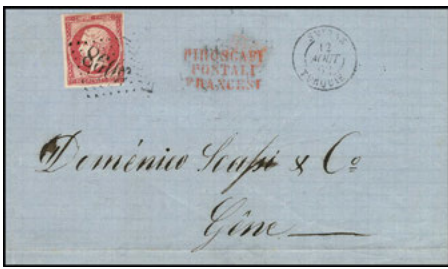 PIROSCAFI
POSTALI
FRANCESI
SMYRNE
12
AOUT
TURQUIE
Doménico Scafsi & Co
Gêne